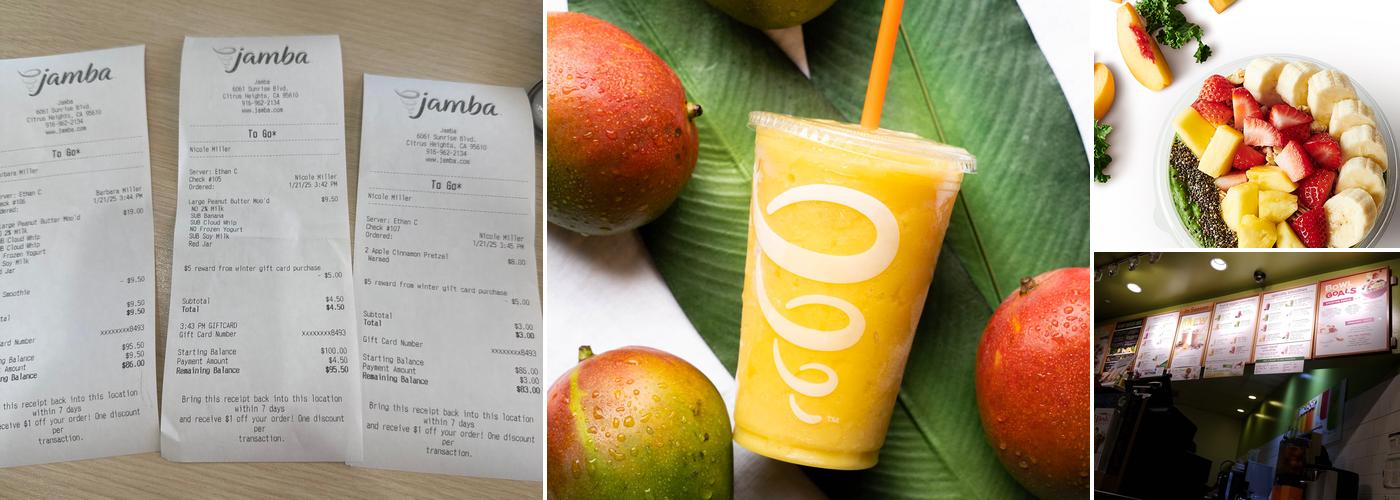 jamba
Jamba
6061 Sunrise Blvd.
Citrus Heights, CA 95610
916-962-2134
www.jamba.com
To Go*
Barbara Miller
Server: Ethan C
Barbara Miller
Check #106
1/21/25 3:44 PM
Ordered:
Large Peanut Butter Moo'd
$19.00
2% Milk
SUB Banana
SUB Cloud Whip
SUB Cloud Whip
Frozen Yogurt
Soy Milk
Smoothie
- $9.50
$9.50
$9.50
xxxxxxxx8493
$95.50
Amount
$9.50
Balance
$86.00
this receipt back into this location
within 7 days
receive $1 off your order! One discount
per
transaction.
jamba
Jamba
6061 Sunrise Blvd.
Citrus Heights, CA 95610
916-962-2134
www.jamba.com
To Go*
Nicole Miller
Server: Ethan C
Check #105 Nicole Miller
Ordered: 1/21/25 3:42 PM
Large Peanut Butter Moo'd $9.50
NO 2% Milk
SUB Banana
SUB Cloud Whip
NO Frozen Yogurt
SUB Soy Milk
Red Jar
$5 reward from winter gift card purchase
- $5.00
Subtotal $4.50
Total $4.50
3:43 PM GIFTCARD
Gift Card Number xxxxxxxx8493
Starting Balance $100.00
Payment Amount $4.50
Remaining Balance $95.50
Bring this receipt back into this location
within 7 days
and receive $1 off your order! One discount
per
transaction.
jamba
Jamba
6061 Sunrise Blvd.
Citrus Heights, CA 95610
916-962-2134
www.jamba.com
To Go*
Nicole Miller
Server: Ethan C
Check #107 Nicole Miller
Ordered: 1/21/25 3:45 PM
2 Apple Cinnamon Pretzel $8.00
Warmed
$5 reward from winter gift card purchase
- $5.00
Subtotal $3.00
Total $3.00
Gift Card Number xxxxxxxx8493
Starting Balance $86.00
Payment Amount $3.00
Remaining Balance $83.00
Bring this receipt back into this location
within 7 days
and receive $1 off your order! One discount
per
transaction.
TM
BOWL
GOALS